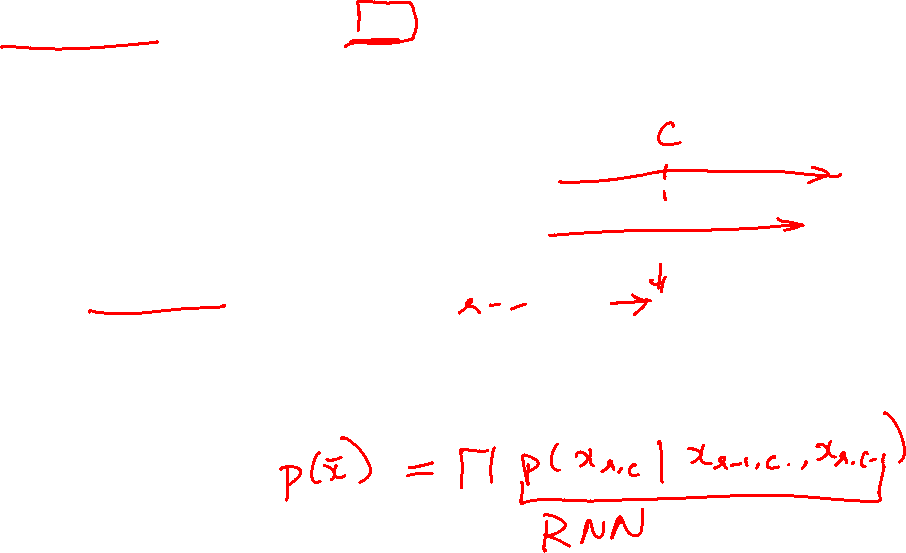 C
r - -
p(x̄) = Π p(x_{r,c} | x_{r-1,c}, x_{r,c-1})
RNN